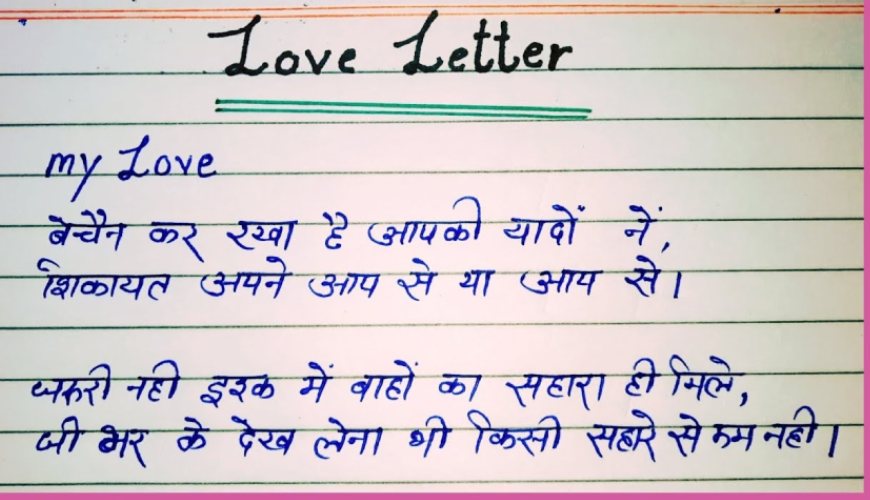 Love Letter
my Love
बेचैन कर रखा है आपकी यादों नें,
शिकायत अपने आप से या आप से।
जरुरी नही इश्क में बाहों का सहारा ही मिले,
जी भर के देख लेना भी किसी सहारे से कम नही।